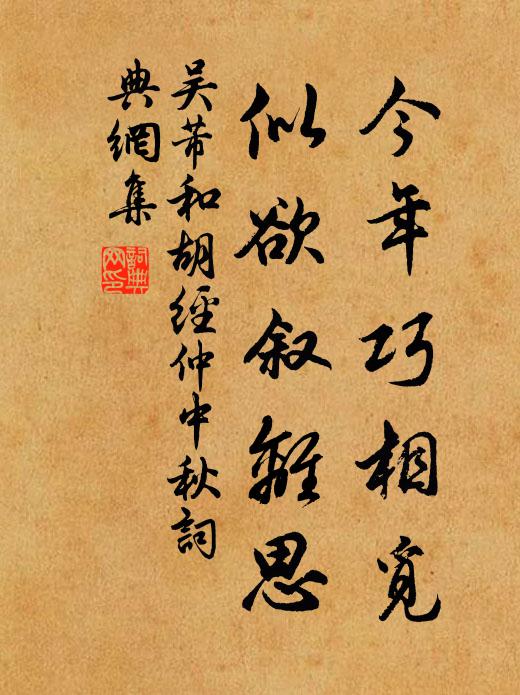 今年巧相覓
似欲叙離思
吴芾和胡經仲中秋詞
典網集
詞典网印